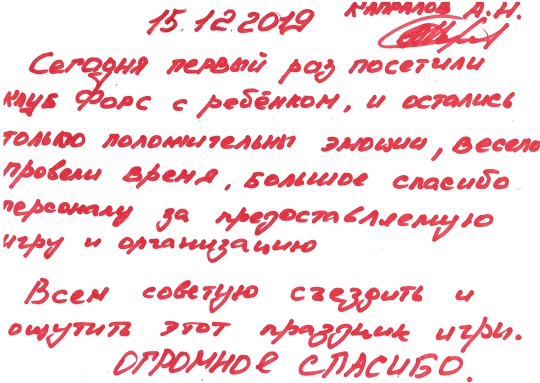 15.12.2019 КАПРАЛОВ А.Н.
Сегодня первый раз посетили
клуб Форс с ребёнком, и остались
только положительны эмоции, весело
провели время, большое спасибо
персоналу за предоставляемую
игру и организацию
Всем советую съездить и
ощутить этот праздник игры.
ОГРОМНОЕ СПАСИБО.